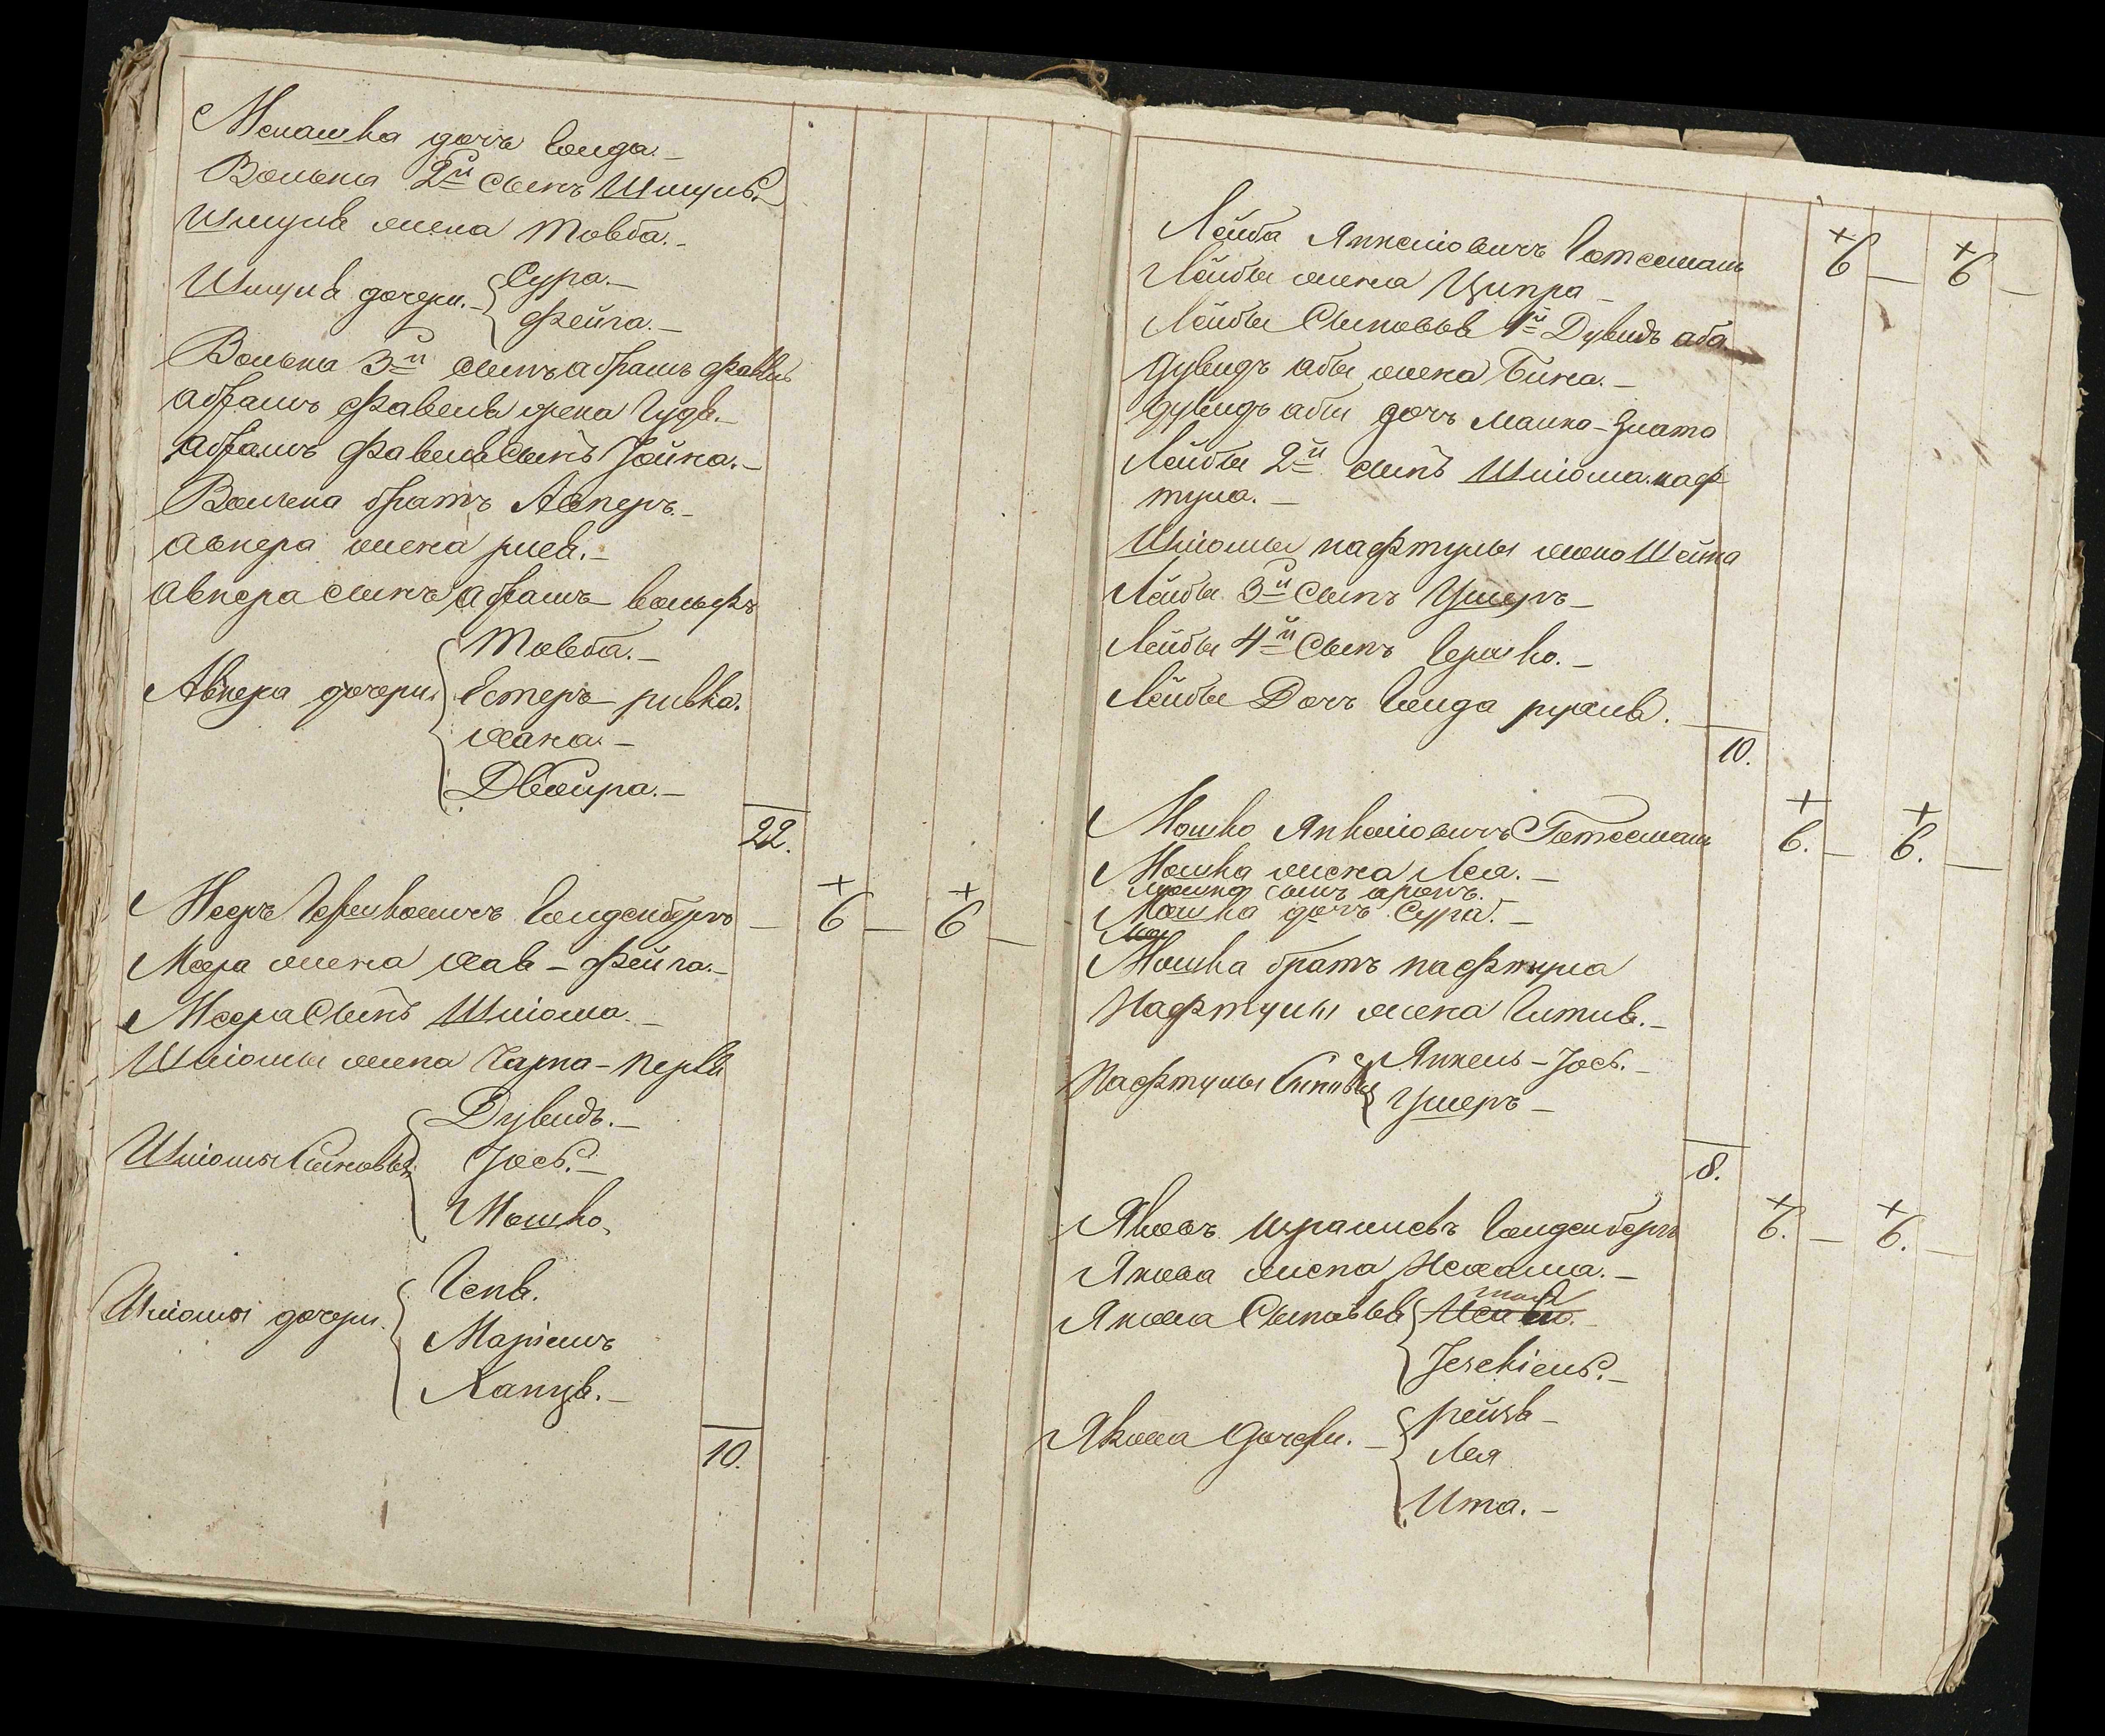 Менашка дочъ Голда. –
Волька 2й сынъ Шмуль. –
Шмуля жена Товба. –
Шмуля дочери. – Сура. –
Фейга. –
Волька 3й сынъ абрамъ Фавель
абрамъ Фавеля жена Гудя. –
абрамъ Фавеля сынъ Іойна. –
Волька братъ Авнеръ. –
авнера жена рися. –
авнера сынъ абрамъ – вольфъ
Авнера дочери Товба. –
Естеръ – ривка.
хана. –
Двойра. –
22.
Мееръ Гершковичъ Голденбергъ – 6 – 6 –
Меера жена хая – Фейга. –
Меера Сынъ Шліома. –
Шліомы жена Чарна – перля
Шліомы Сыновья Дувидъ. –
Іось. –
Мошко.
Шліомы дочери. Геня.
Маріемъ
Ханця. –
10.
Лейба Янкеліовичъ Готесманъ 6 – 6 –
Лейбы жена Ципра –
Лейбы Сыновья 1й Дувидъ аба
Дувидъ абы жена Бина. –
Дувидъ абы дочъ малка – Злата
Лейбы 2й сынъ Шліома наф
тула. –
Шліомы нафтулы жена Шейна
Лейбы 3й Сынъ Ушеръ –
Лейбы 4й Сынъ Гершко. –
Лейбы Дочъ Голда рухля. –
10.
Мошко Янкеліовичъ Готесманъ 6. – 6. –
Мошка жена Лея. –
Мошка сынъ аронъ.
Мошка дочъ Сура. –
Мошка братъ нафтула
Нафтулы жена Гитля. –
Нафтулы Сыновья Янкель – Іось. –
Ушеръ –
8.
Яковъ израилевъ Голденбергъ 6. – 6. –
Якова жена Нехама. –
Якова Сыновья
Іехкіель. –
Якова дочери. – рейзя –
Лея
Ита. –